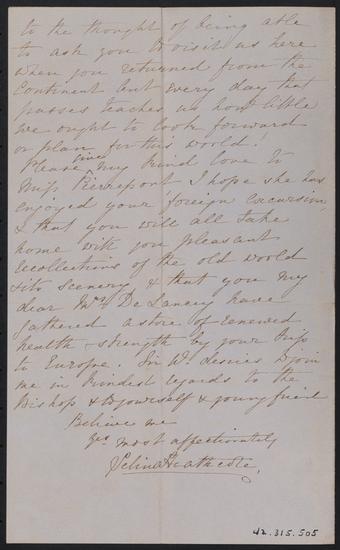 to the thought of being able
to ask you to visit us here
when you returned from the
Continent but every day that
passes teaches us how little
we ought to look forward
or plan for this world!
Please give my kind love to
Miss Pierrepont I hope she has
enjoyed your foreign excursion,
& that you will all take
home with you pleasant
recollections of the old world
its scenery & that you my
dear Mrs De Lancey have
gathered a store of renewed
health & strength by your trip
to Europe. Sir Wm. desires to join
me in kindest regards to the
Bishop & to yourself & young friend
Believe me
yrs most affectionately
Selina Heathcote,
42.315.505